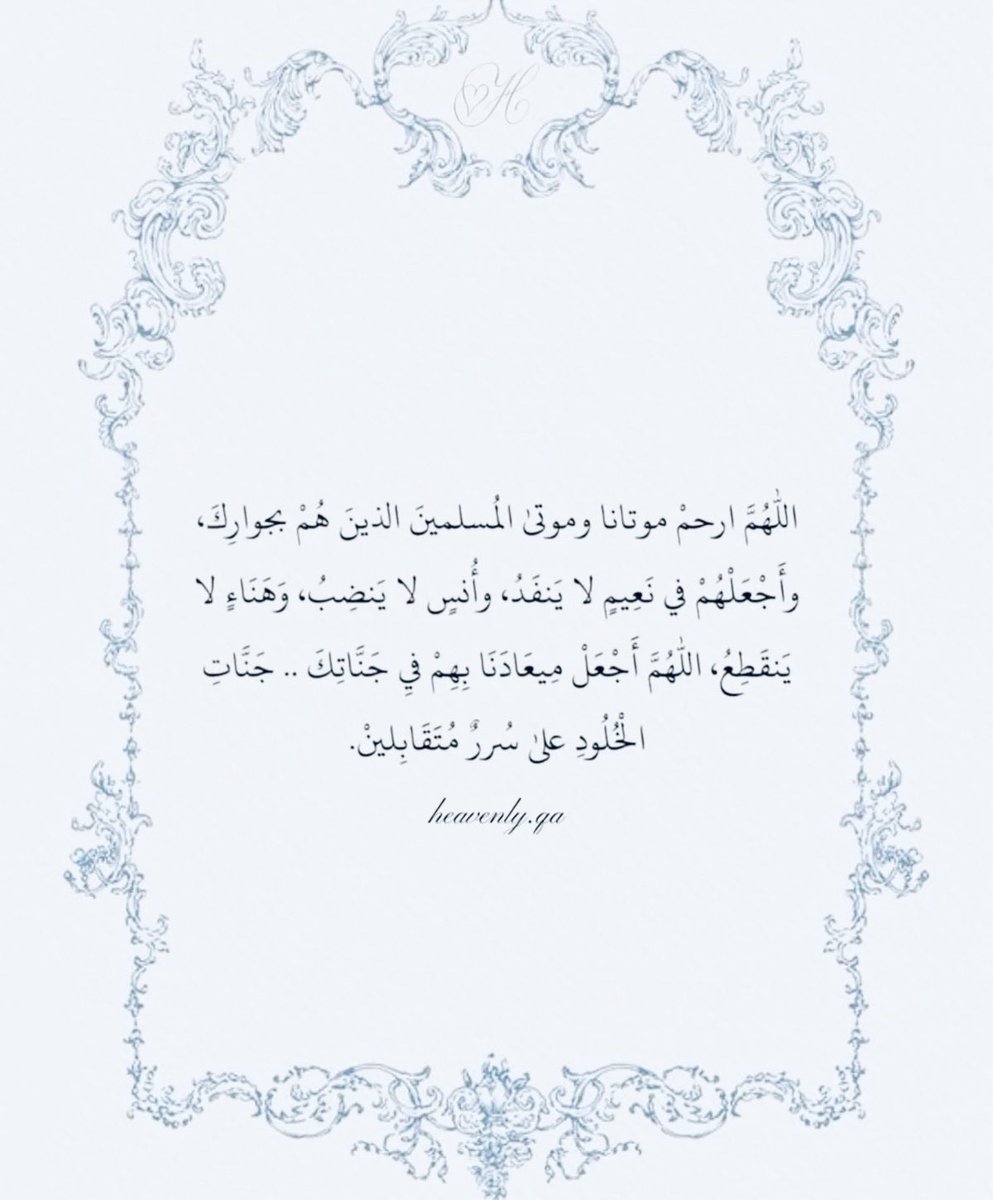 H
اللّٰهُمَّ ارحمْ موتانا وموتىٰ المُسلمينَ الذينَ هُمْ بجوارِكَ،
وأَجْعَلْهُمْ في نَعِيمٍ لا يَنفَدُ، وأُنسٍ لا يَنضِبُ، وَهَنَاءٍ لا
يَنقَطِعُ، اللّٰهُمَّ أَجْعَلْ مِيعَادَنَا بِهِمْ فِي جَنَّاتِكَ .. جَنَّاتِ
الْخُلُودِ علىٰ سُررٌ مُتَقَابِلينْ.
heavenly.qa